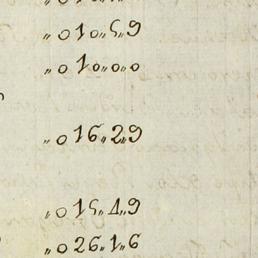 „ 0 10„ 5„ 9
„ 0 10„ 0„ 0
„ 0 16„ 2„ 9
„ 0 15„ 4„ 9
„ 0 26„ 1„ 6